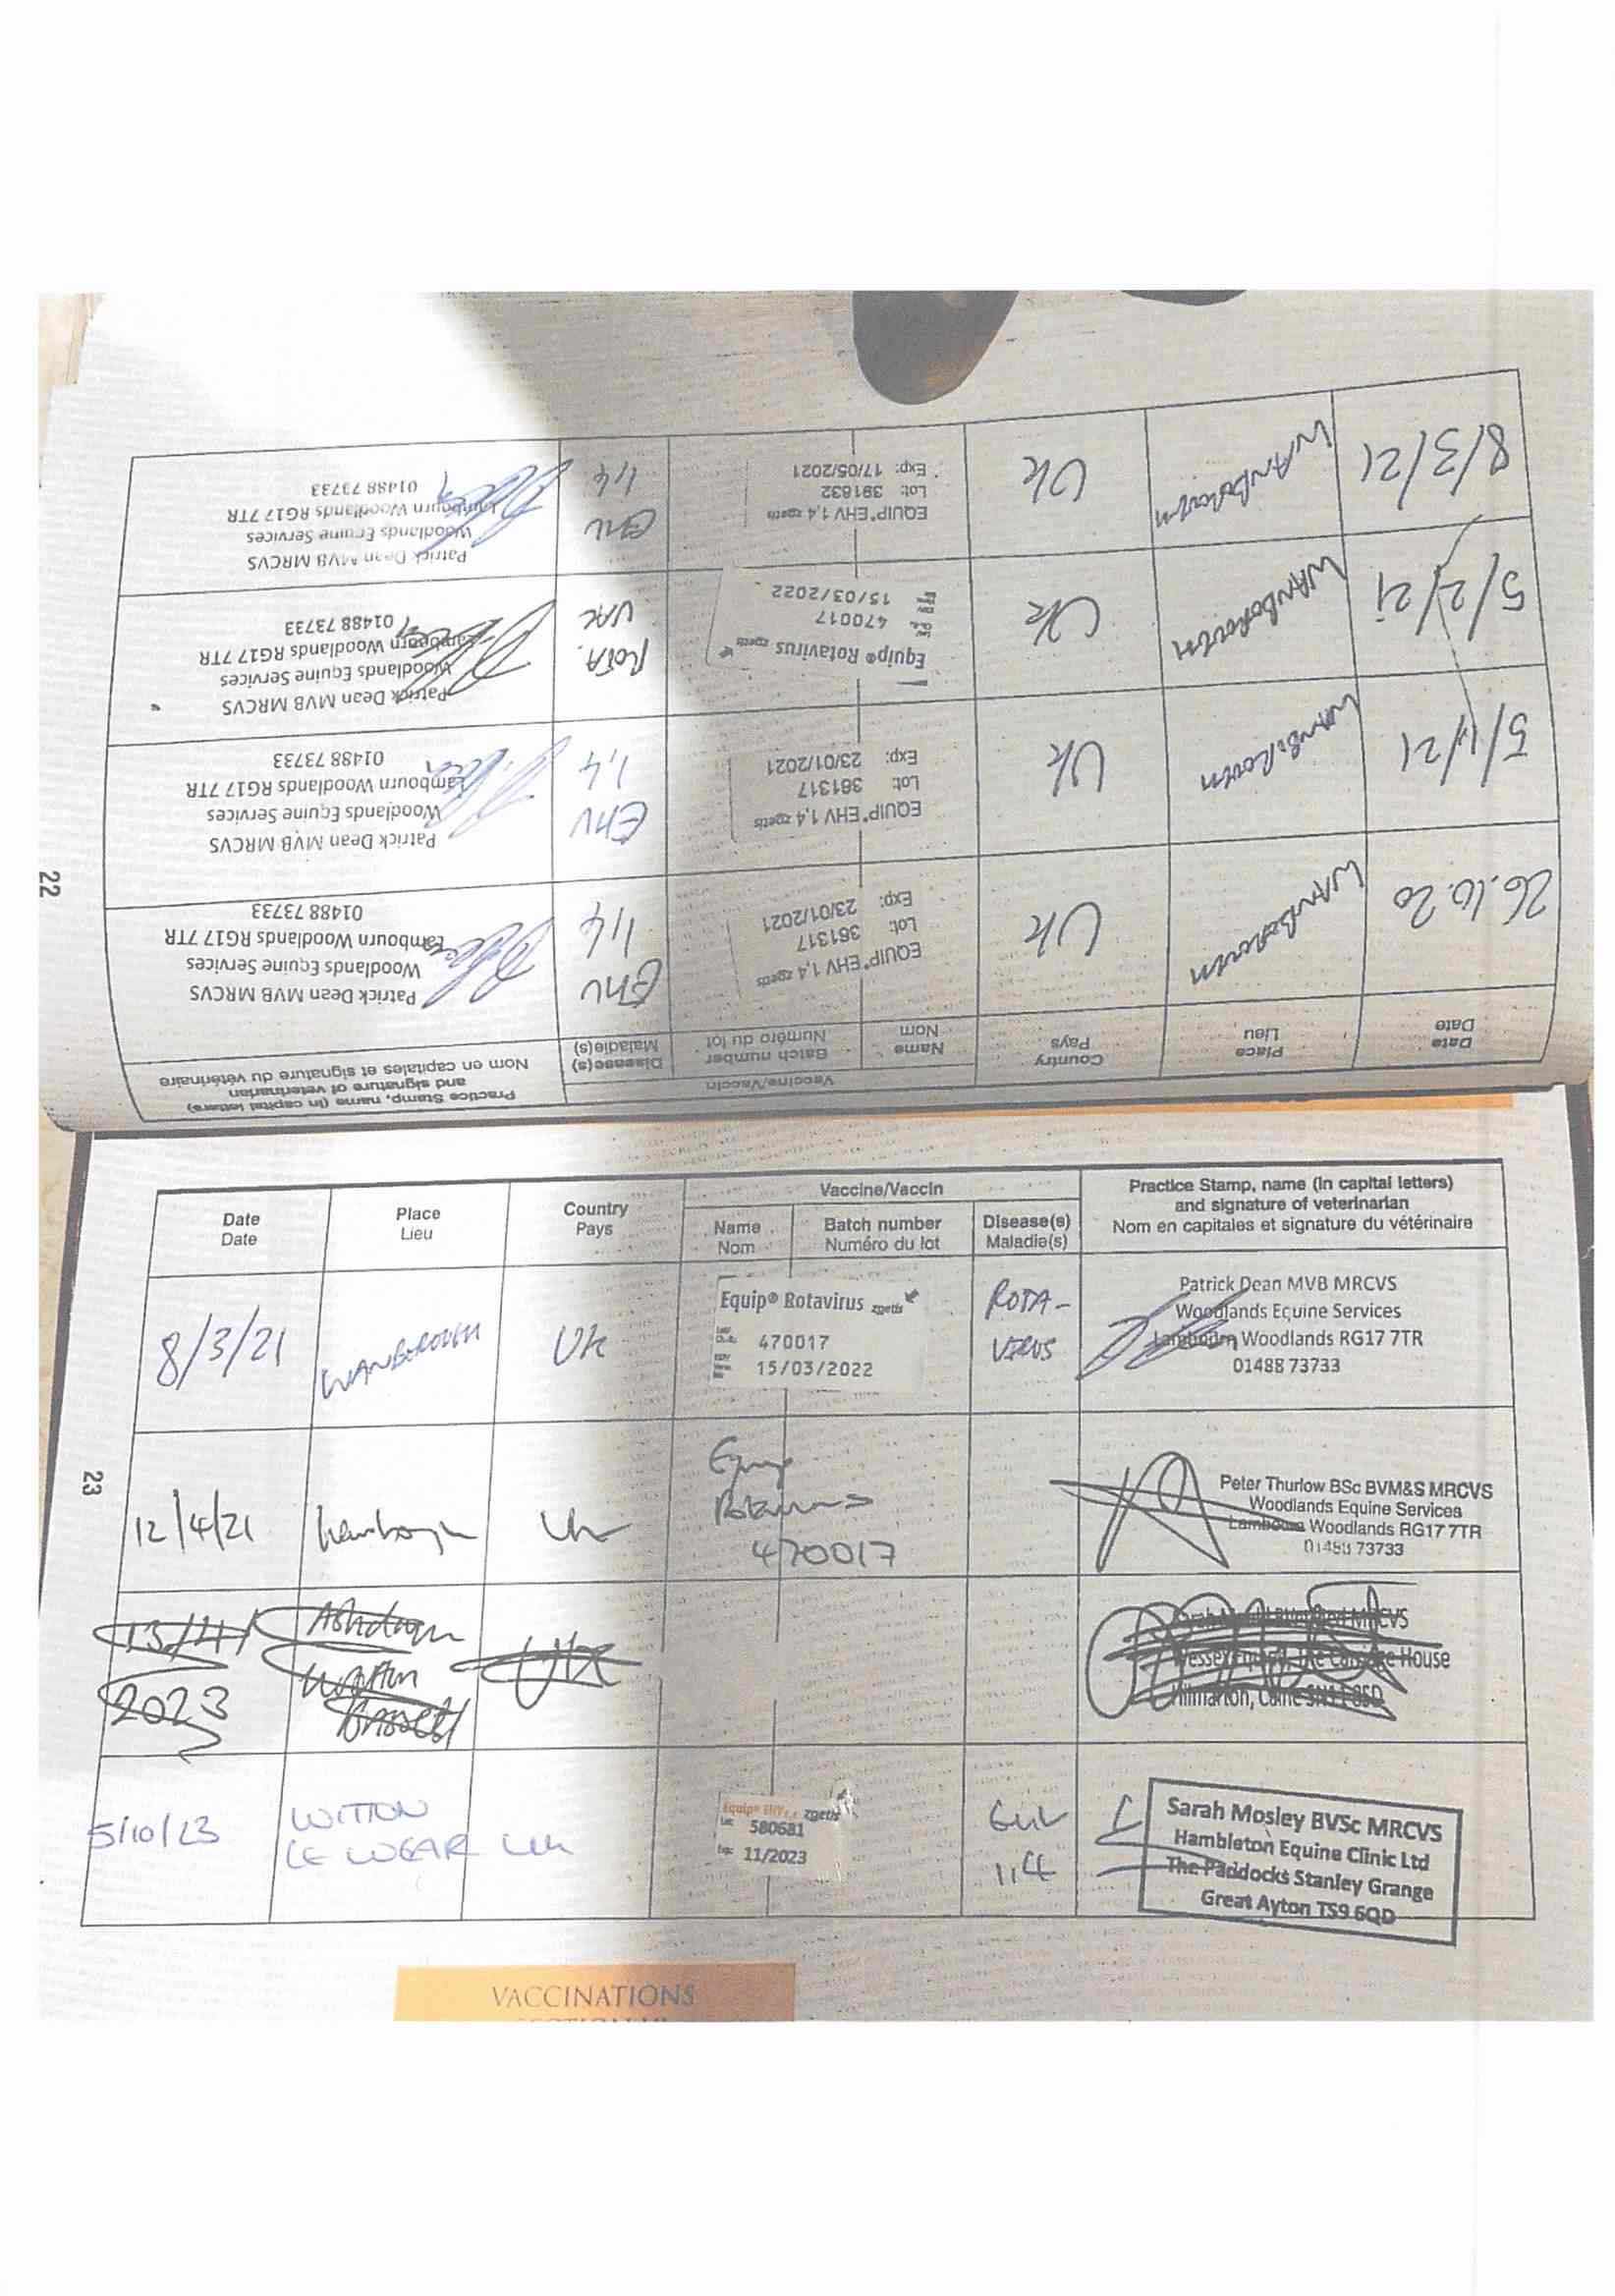 Practice Stamp, name (in capital letters)
and signature of veterinarian
Nom en capitales et signature du vétérinaire
Vaccine/Vaccin
Date
Date
Place
Lieu
Country
Pays
Name
Nom
Batch number
Numéro du lot
Disease(s)
Maladie(s)
26.10.20
WANBOROUGH
UK
EQUIP® EHV 1,4 zoetis
Lot: 381317
Exp: 23/01/2021
EHV
1,4
Patrick Dean MVB MRCVS
Woodlands Equine Services
Lambourn Woodlands RG17 7TR
01488 73733
5/1/21
WANBOROUGH
UK
EQUIP® EHV 1,4 zoetis
Lot: 381317
Exp: 23/01/2021
EHV
1,4
Patrick Dean MVB MRCVS
Woodlands Equine Services
Lambourn Woodlands RG17 7TR
01488 73733
5/2/21
WANBOROUGH
UK
Equip® Rotavirus zoetis
470017
15/03/2022
ROTA.
Patrick Dean MVB MRCVS
Woodlands Equine Services
Lambourn Woodlands RG17 7TR
01488 73733
8/3/21
WANBOROUGH
UK
EQUIP® EHV 1,4 zoetis
Lot: 391832
Exp: 17/05/2021
EHV
1,4
Patrick Dean MVB MRCVS
Woodlands Equine Services
Lambourn Woodlands RG17 7TR
01488 73733
22
Date
Date
Place
Lieu
Country
Pays
Vaccine/Vaccin
Name
Nom
Batch number
Numéro du lot
Disease(s)
Maladie(s)
Practice Stamp, name (in capital letters)
and signature of veterinarian
Nom en capitales et signature du vétérinaire
8/3/21
WANBOROUGH
UK
Equip® Rotavirus zoetis
470017
15/03/2022
ROTA-
VIRUS
Patrick Dean MVB MRCVS
Woodlands Equine Services
Lambourn Woodlands RG17 7TR
01488 73733
12/4/21
Wanborough
UK
Equip
Rotavirus
470017
Peter Thurlow BSc BVM&S MRCVS
Woodlands Equine Services
Lambourn Woodlands RG17 7TR
01488 73733
13/4/
2023
Ashdown
Wootton
Bassett
UK
MRCVS
Wessex Equine, The Carriage House
Hilmarton, Calne SN11 8SD
5/10/23
WITTON
LE WEAR
UK
Equip® EHV 1,4 zoetis
580681
11/2023
EHV
1,4
Sarah Mosley BVSc MRCVS
Hambleton Equine Clinic Ltd
The Paddocks Stanley Grange
Great Ayton TS9 6QD
23
VACCINATIONS